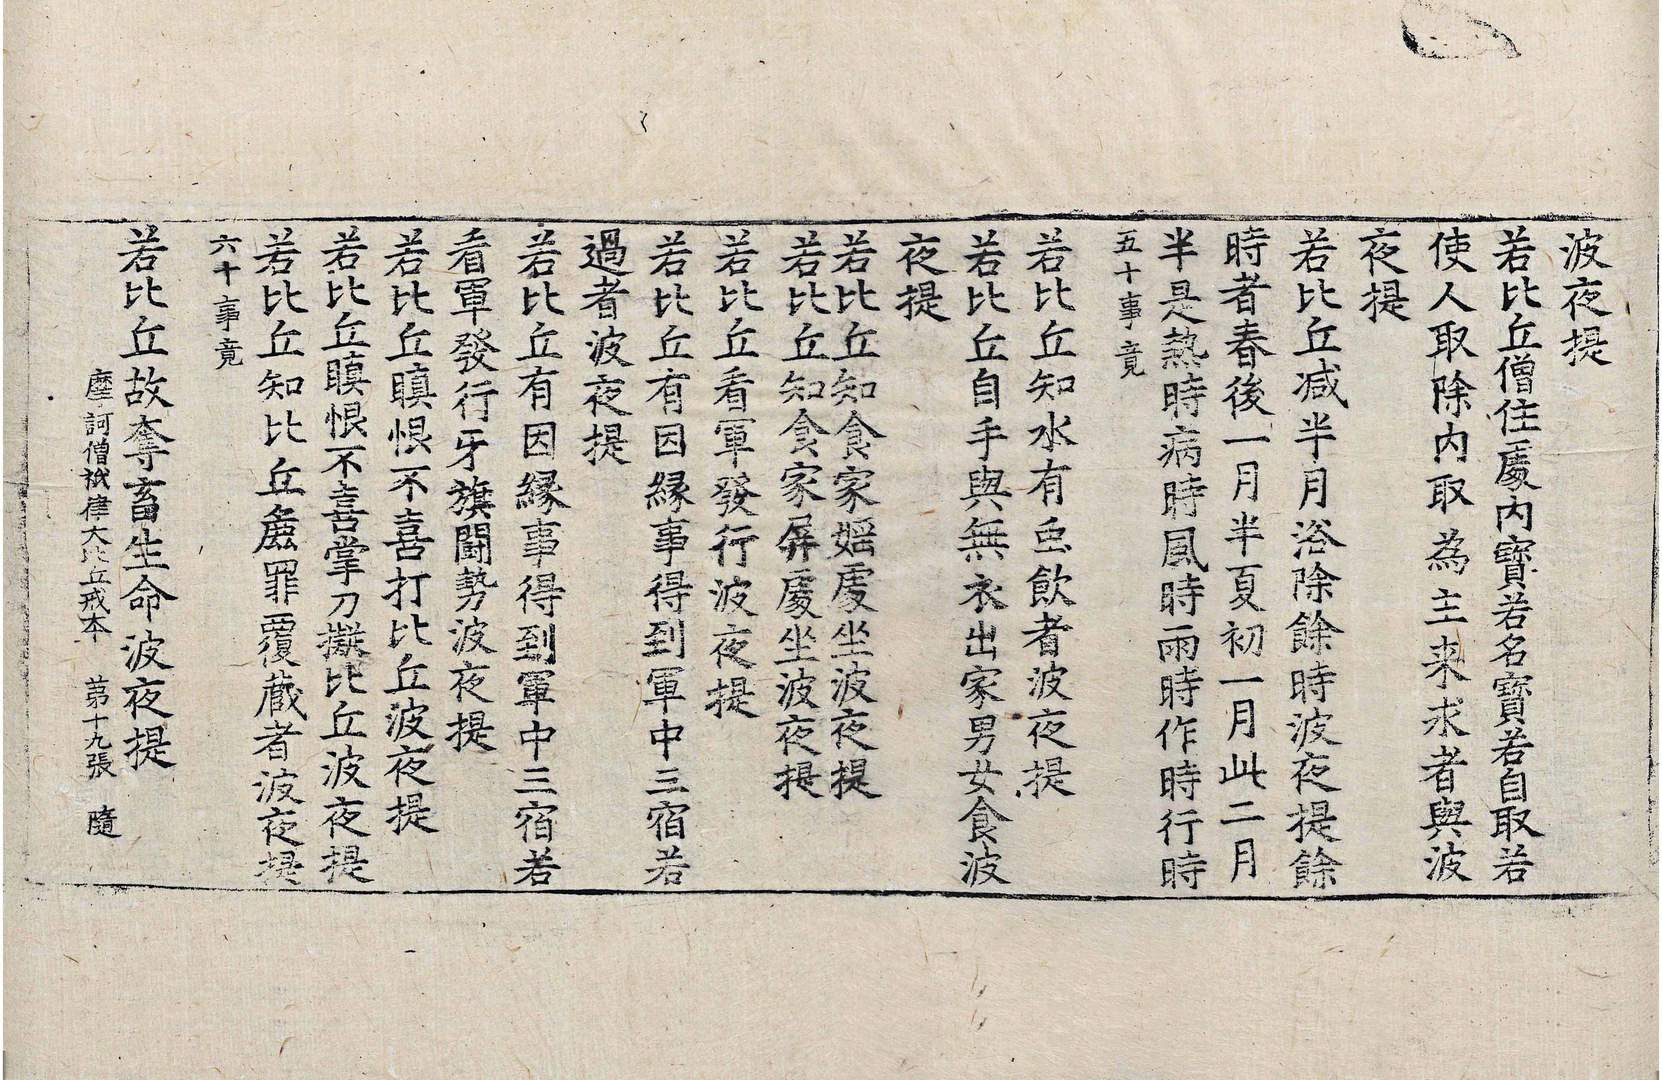 波夜提
若比丘僧住處內寶若名寶若自取若
使人取除內取為主来求者與波
夜提
若比丘减半月浴除餘時波夜提餘
時者春後一月半夏初一月此二月
半是熱時病時風時雨時作時行時
五十事竟
若比丘知水有虫飲者波夜提
若比丘自手與無衣出家男女食波
夜提
若比丘知食家婬處坐波夜提
若比丘知食家屏處坐波夜提
若比丘看軍發行波夜提
若比丘有因縁事得到軍中三宿若
過者波夜提
若比丘有因縁事得到軍中三宿若
看軍發行牙旗鬪勢波夜提
若比丘瞋恨不喜打比丘波夜提
若比丘瞋恨不喜掌刀擬比丘波夜提
若比丘知比丘麁罪覆蔵者波夜提
六十事竟
若比丘故奪畜生命波夜提
摩訶僧祇律大比丘戒本 第十九張 隨